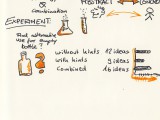 ABSTRACT
CONCRE
combination
EXPERIMENT:
Find alternative
use for empty
bottle?
without hints 12 ideas
with hints 9 ideas
combined 16 ideas